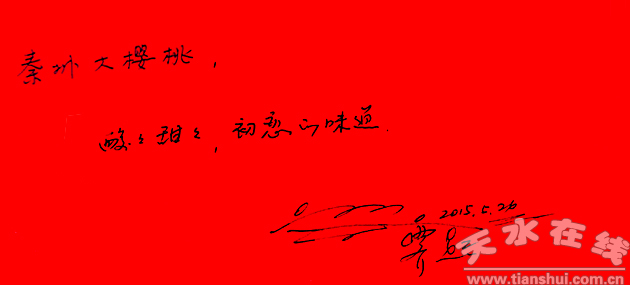 秦州大樱桃，
酸々甜々，初恋的味道.
2015.5.26
天水在线
www.tianshui.com.cn